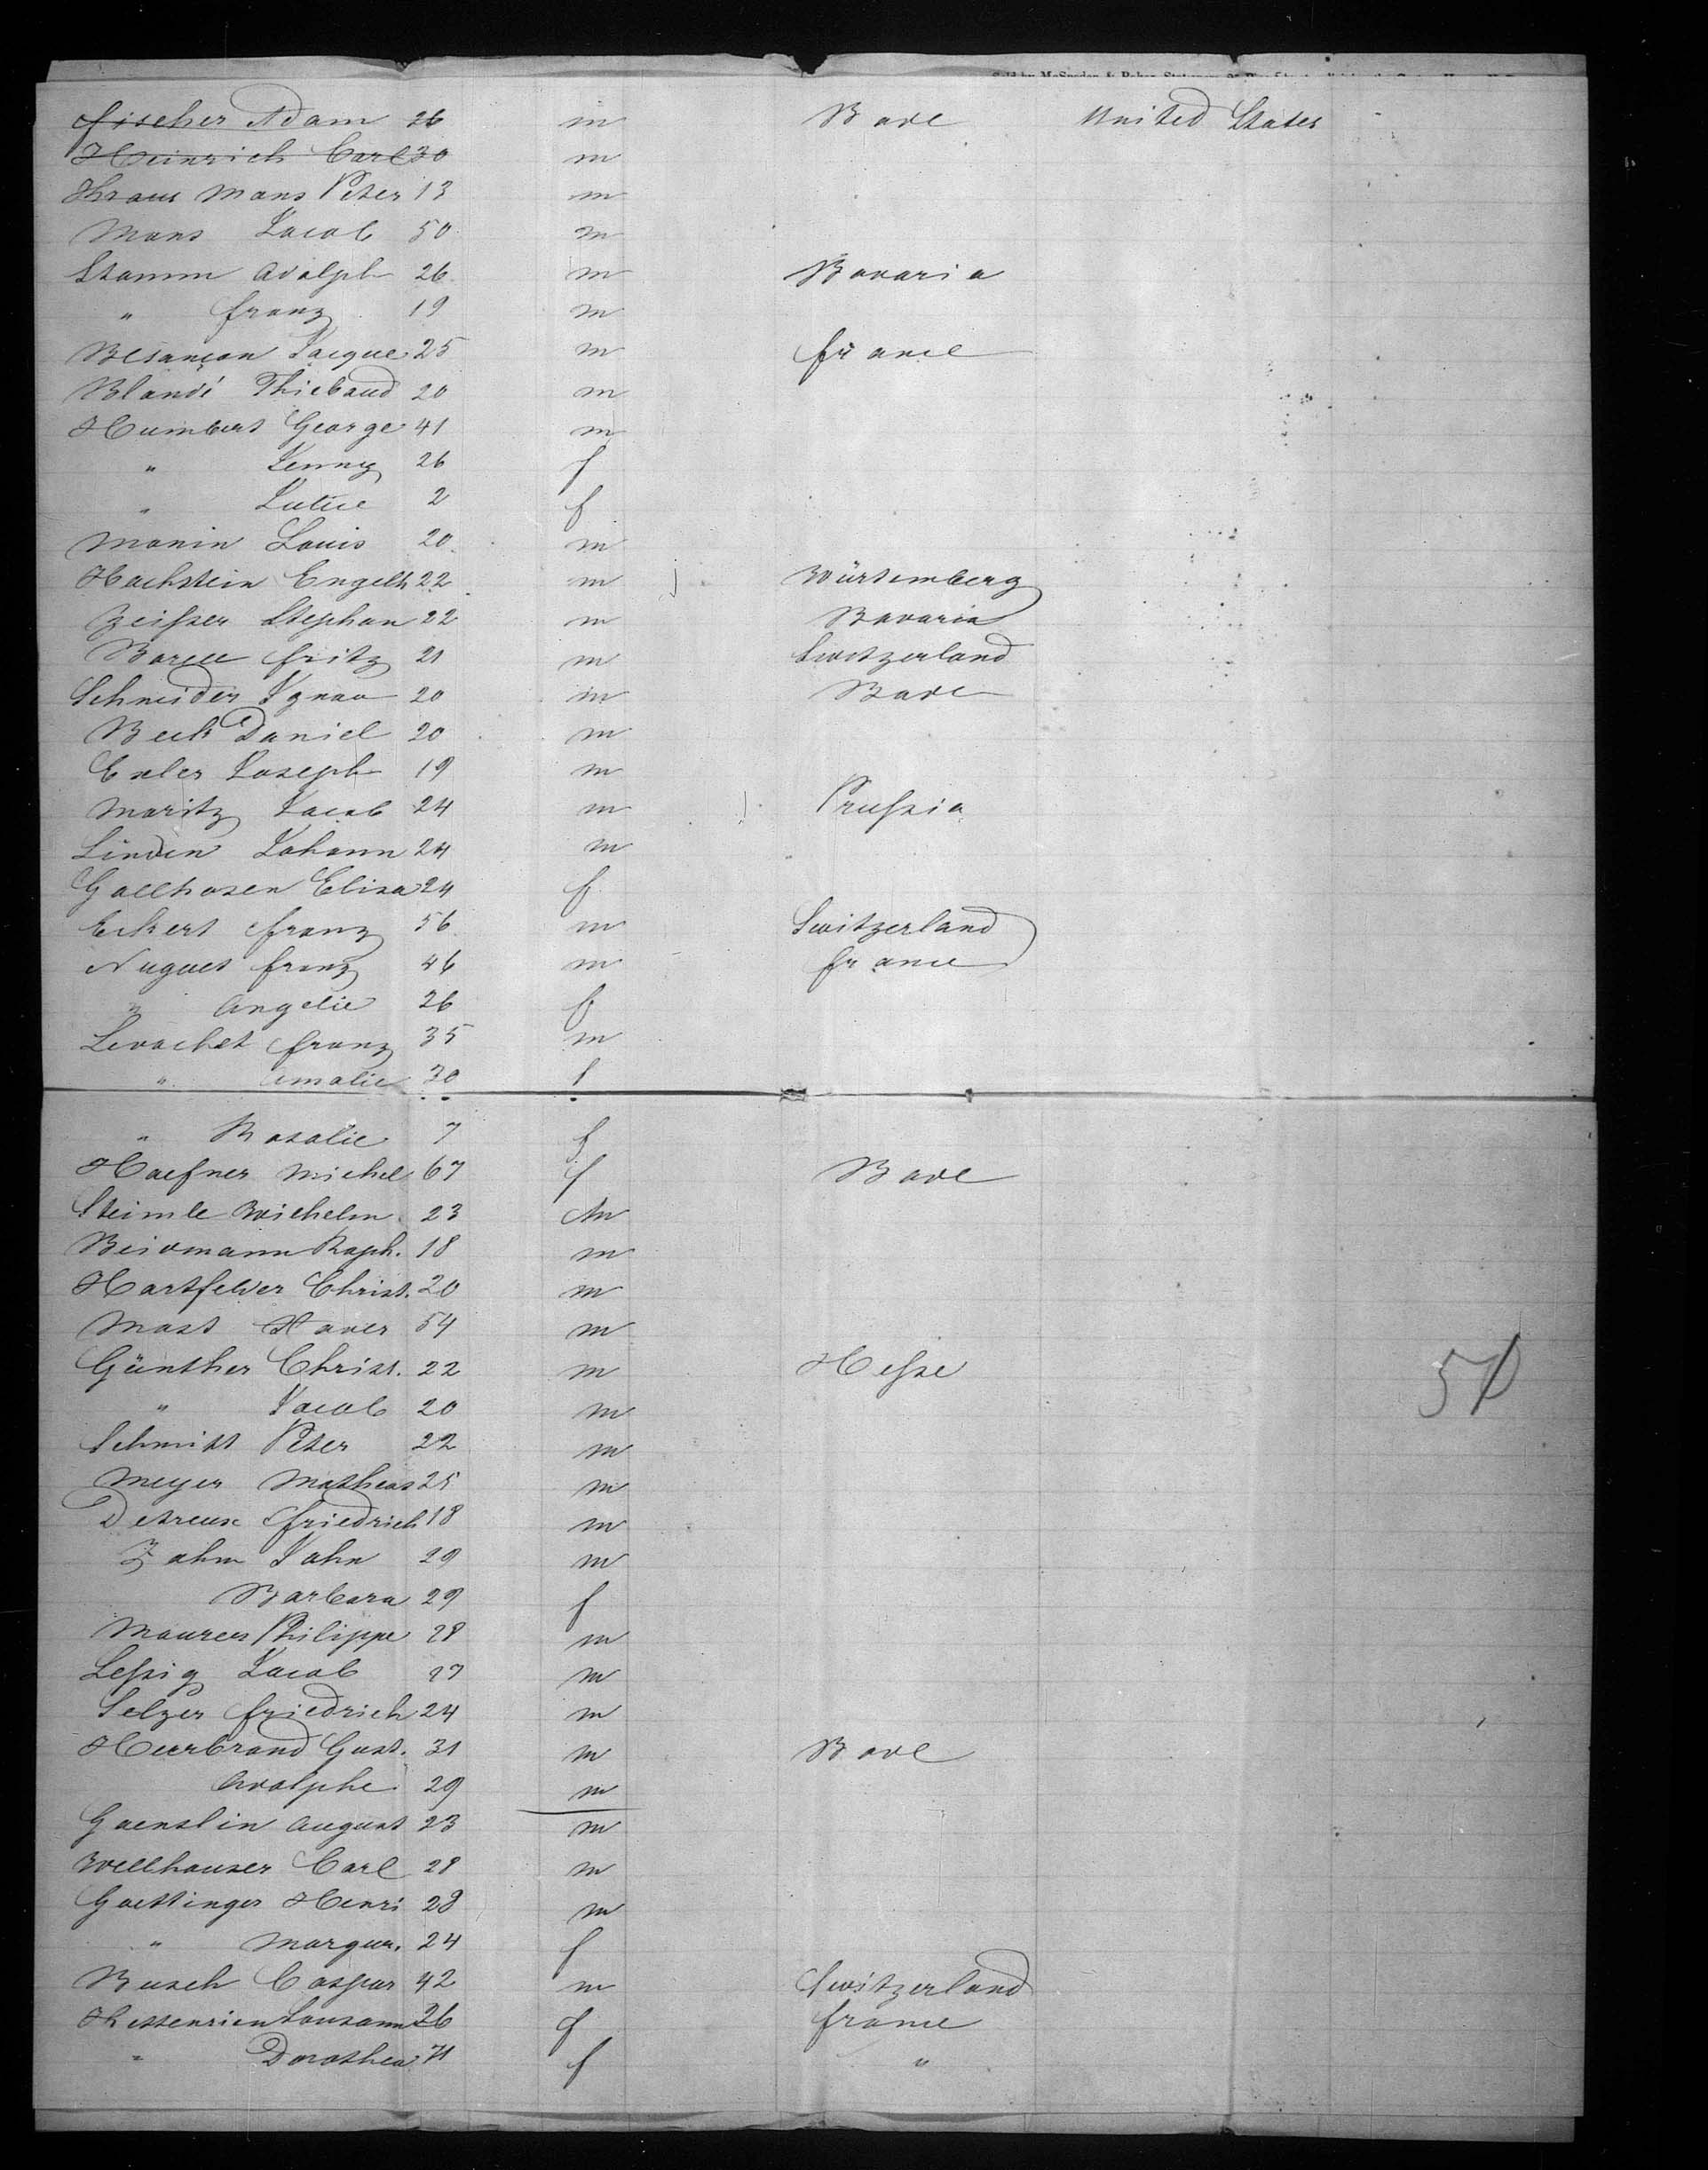 Fischer Adam 26 m Bade United States
Heinrich Carl 30 m
Kraus Mans Peter 13 m
Mans Jacob 50 m
Stamm Adolph 26 m Bavaria
" Franz 19 m
Besançon Jacque 25 m France
Blandé Thiebaud 20 m
Humbert George 41 m
" Jenny 26 f
" 2 f
Monin Louis 20 m
Hachstein Engelh 22 m Würtemberg
Zeisser Stephan 22 m Bavaria
Borell Fritz 21 m Switzerland
Schneider Ignaz 20 m Bade
Beck Daniel 20 m
Exler Joseph 19 m
Moritz Jacob 24 m Prussia
Linden Johann 24 m
Gallhosen Elisa 24 f
Eckert Franz 56 m Switzerland
Nuguet Franz 46 m France
" Angelie 26 f
Levachet Franz 35 m
" Amalie 30 f
" Rosalie 7 f
Haefner Michel 67 f Bade
Steimle Wilhelm 23 m
Beidmann Raph. 18 m
Hartfelder Christ. 20 m
Mast Xaver 54 m
Günther Christ. 22 m Hesse
" Jacob 20 m
Schmitt Peter 22 m
Meyer Matheas 25 m
Detreux Friedrich 18 m
Zahm John 29 m
Barbara 29 f
Maurer Philippe 28 m
Lessig Jacob 27 m
Selzer Friedrich 24 m
Heerbrand Gust. 31 m Bade
Adolphe 29 m
Gaenslin August 23 m
Wellhauser Carl 28 m
Goettinger Henri 28 m
" Margur. 24 f
Busch Caspar 42 m Switzerland
26 f France
" Dorothea 71 f "